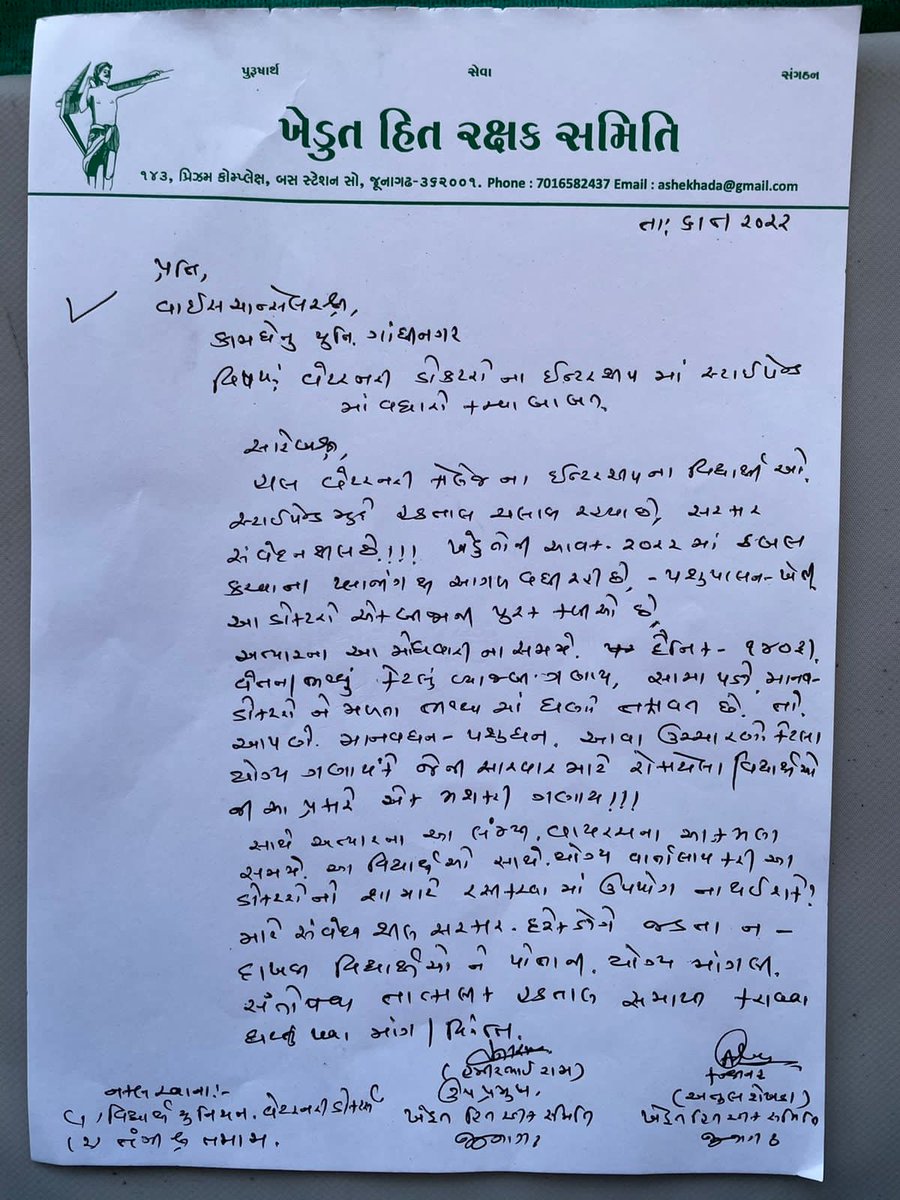 પુરૂષાર્થ સેવા સંગઠન
ખેડુત હિત રક્ષક સમિતિ
૧૪૩, પ્રિઝમ કોમ્પ્લેક્ષ, બસ સ્ટેશન સો, જૂનાગઢ-૩૬૨૦૦૧. Phone : 7016582437 Email : ashekhada@gmail.com
તાઃ ૨૦૨૨
પ્રતિ,
વાઈસ ચાન્સેલરશ્રી,
કામધેનુ યુનિ. ગાંધીનગર
વિષયઃ વેટરનરી ડોકટરો ના ઈન્ટરશીપ માં સ્ટાઈપેન્ડ
માં વધારો કરવા બાબત.
સાહેબશ્રી,
હાલ વેટરનરી કોલેજ ના ઈન્ટરશીપ ના વિદ્યાર્થીઓ.
સ્ટાઈપેન્ડ મુદ્દે હડતાલ ચલાવી રહ્યા છે, સરકાર
સંવેદનશીલ છે.!!! ખેડુતોની આવક-૨૦૨૨ માં ડબલ
કરવાના આગળ વધી રહી છે, -પશુપાલન-ખેતી
આ ડોકટરો એકબીજાની પુરક કડીઓ છે,
અત્યારના આ મોંઘવારી ના સમયે. દૈનિક-
વેતન/ભથ્થું કેટલું વ્યાજબી ગણાય, સામા પક્ષે માનવ-
ડોકટરો ને મળતા ભથ્થા માં ઘણો તફાવત છે. તો.
આપણે. માનવધન-પશુધન. આવા ઉચ્ચારણો કેટલા
યોગ્ય ગણાય? જેની સારવાર માટે રોકાયેલા વિદ્યાર્થીઓ
ની આ પ્રકારે એક મશ્કરી ગણાય!!!
સાથે અત્યારના આ લંમ્પી. વાયરસના આક્રમણ
સમયે. આ વિદ્યાર્થીઓ સાથે. યોગ્ય વાર્તાલાપ કરી આ
ડોકટરોનો શા માટે રસીકરણ માં ઉપયોગ ના થઈ શકે?
માટે સંવેદનશીલ સરકાર. જડતા ન-
દાખવી વિદ્યાર્થીઓ ને પોતાની. યોગ્ય માંગણી.
સંતોષવા તાત્કાલિક હડતાલ સમાપ્ત કરાવવા
માંગ/વિનંતી.
(હમીરભાઈ રામ)
ઉપ પ્રમુખ,
ખેડુત હિત રક્ષક સમિતિ
જુનાગઢ
(અતુલ શેખડા)
ખેડુત હિત રક્ષક સમિતિ
જુનાગઢ
નકલ રવાના:-
(૧) વિદ્યાર્થી યુનિયન. વેટરનરી ડોકટર્સ
(૨) તંત્રી શ્રી તમામ.